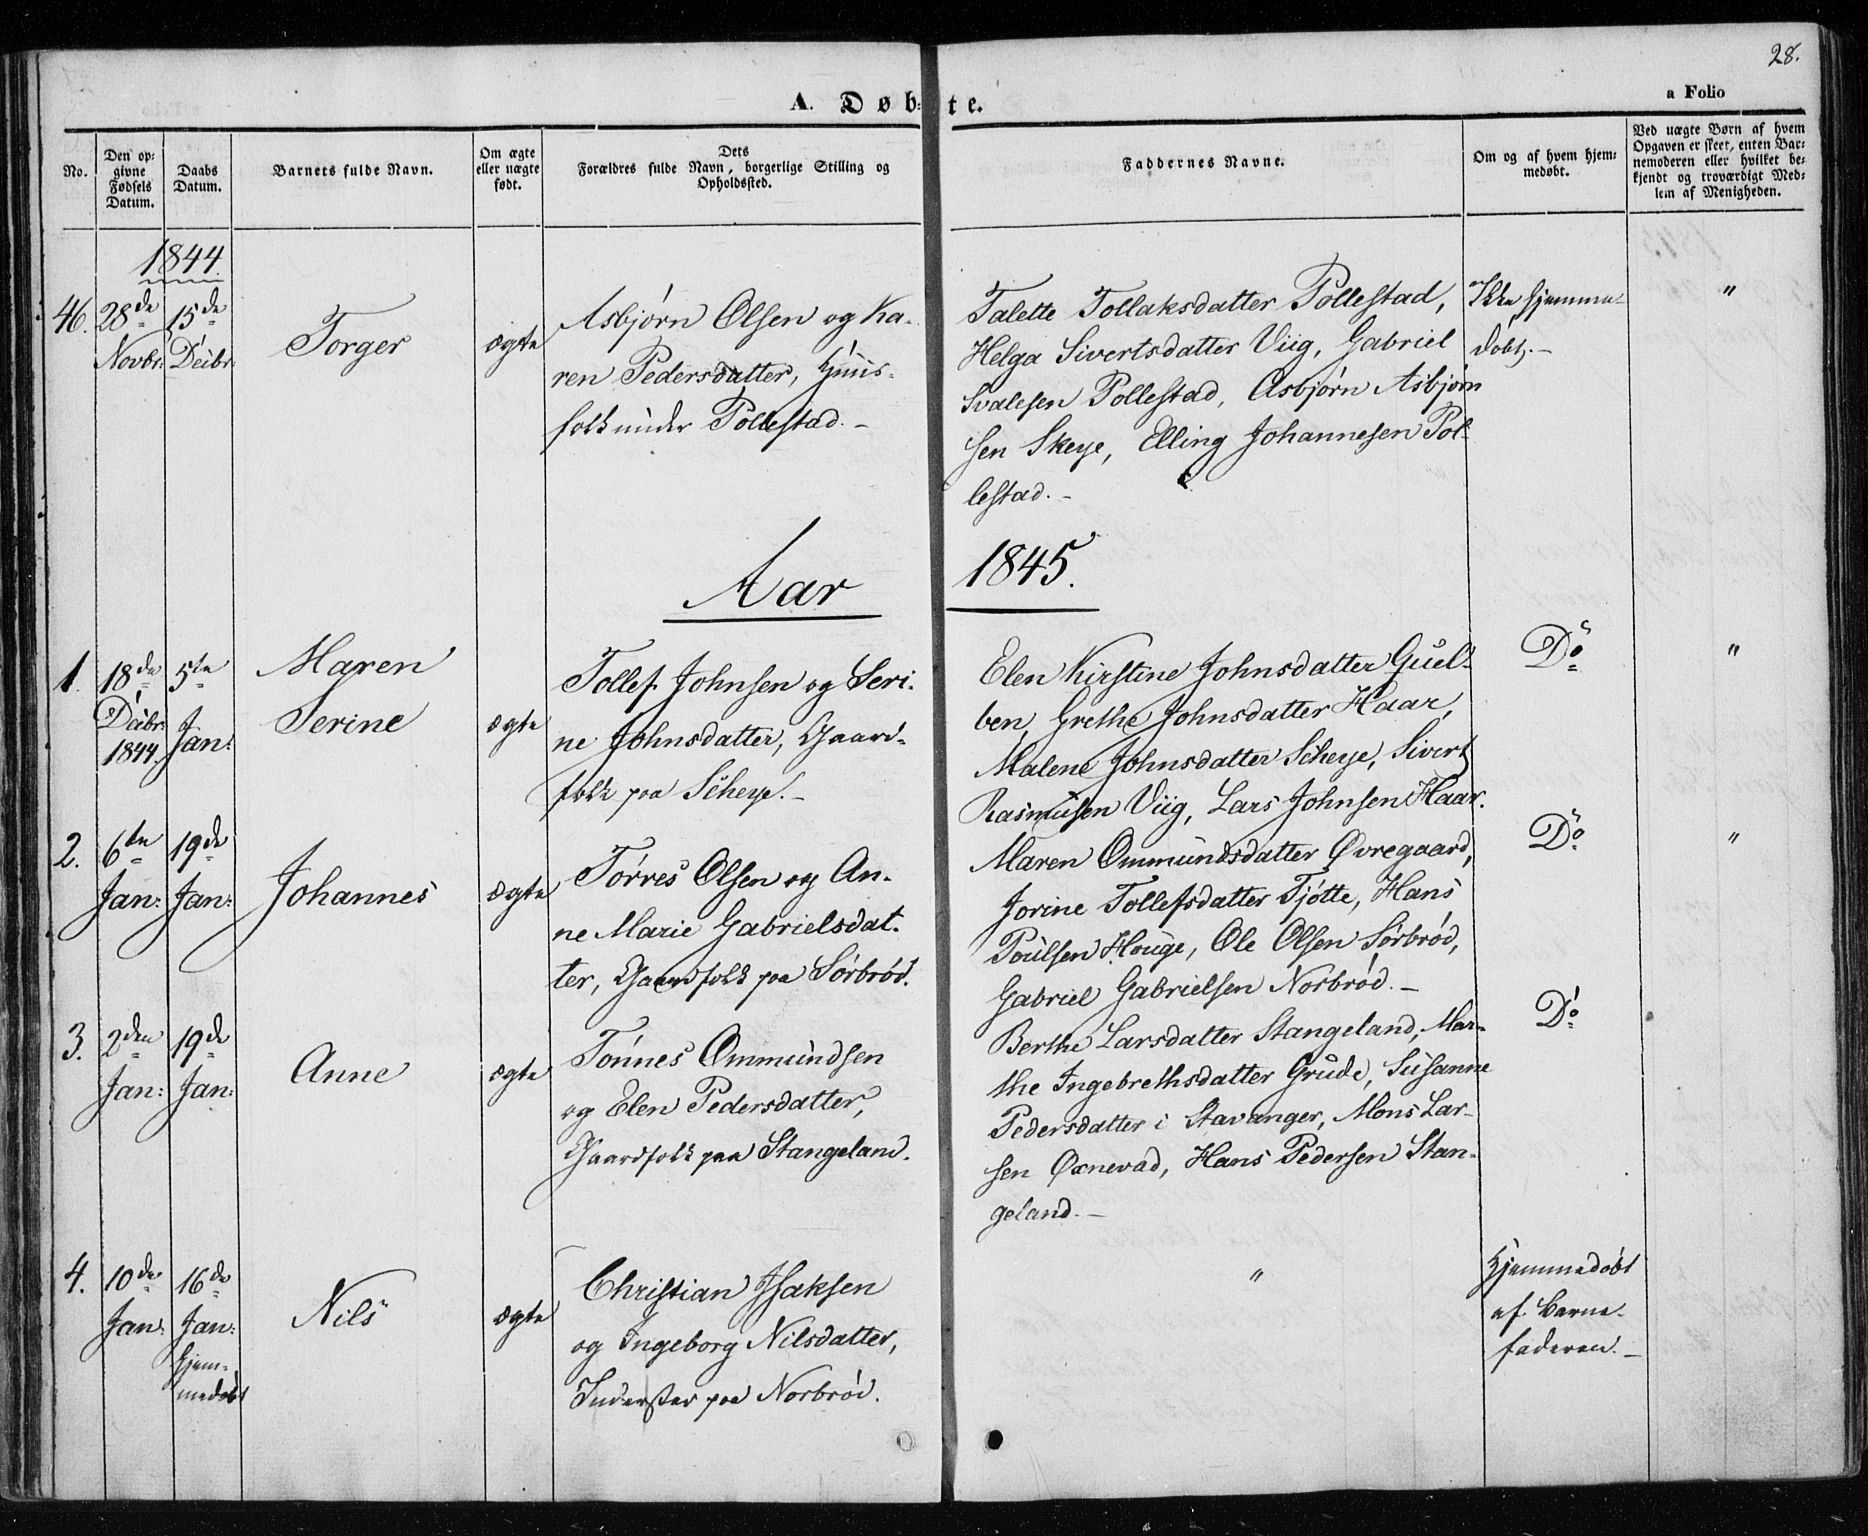 28.
A. Døb-
te.
a Folio
No.
Den op-
givne
Fødsels
Datum.
Daabs
Datum.
Barnets fulde Navn.
Om ægte
eller uægte
født.
Dets
Forældres fulde Navn, borgerlige Stilling og
Opholdssted.
Faddernes Navne.
Om og af hvem hjem-
medøbt.
Ved uægte Børn af hvem
Opgaven er skeet, enten Bar-
nemoderen eller hvilket be-
kjendt og troværdigt Med-
lem af Menigheden.
1844
46.
28de
Novbr:
15de
Decbr:
Torger
ægte
Asbjørn Olsen og Ka-
ren Pedersdatter, Huus-
folk under Pollestad.-
Talette Tollaksdatter Pollestad,
Helga Sivertsdatter Viig, Gabriel
Svalesen Pollestad, Asbjørn Asbjørn
sen Skeye, Elling Johannesen Pol-
lestad.-
Ikke hjemme-
døbt.-
"
Aar
1845.
1.
18de
Decbr:
1844.
5te
Jan:
Maren
Serine
ægte
Tollef Johnsen og Seri-
ne Johnsdatter, Gaard-
folk paa Scheye.-
Elen Kirstine Johnsdatter Guel-
ben, Grethe Johnsdatter Haar,
Malene Johnsdatter Scheye, Sivert
Rasmusen Viig, Lars Johnsen Haar.
Do
"
2.
6te
Jan:
19de
Jan:
Johannes
ægte
Tørres Olsen og An-
ne Marie Gabrielsdat-
ter, Gaardfolk paa Sørbrød.
Maren Ommundsdatter Øvregaard,
Jorine Tollefsdatter Tjøtte, Hans
Poulsen Houge, Ole Olsen Sørbrød,
Gabriel Gabrielsen Norbrød.-
Do
"
3.
2den
Jan:
19de
Jan:
Anne
ægte
Tønnes Ommundsen
og Elen Pedersdatter,
Gaardfolk paa Stangeland.
Berthe Larsdatter Stangeland, Mar-
the Ingebrethsdatter Grude, Susanne
Pedersdatter i Stavanger, Mons Lar-
sen Oxnevad, Hans Pedersen Stan-
geland.-
Do
4.
10de
Jan:
16de
Jan:
hjem-
medøbt
Nils
ægte
Christian Isaksen
og Ingeborg Nilsdatter,
Inderster paa Norbrød.
"
Hjemmedøbt
af Barne-
faderen.-